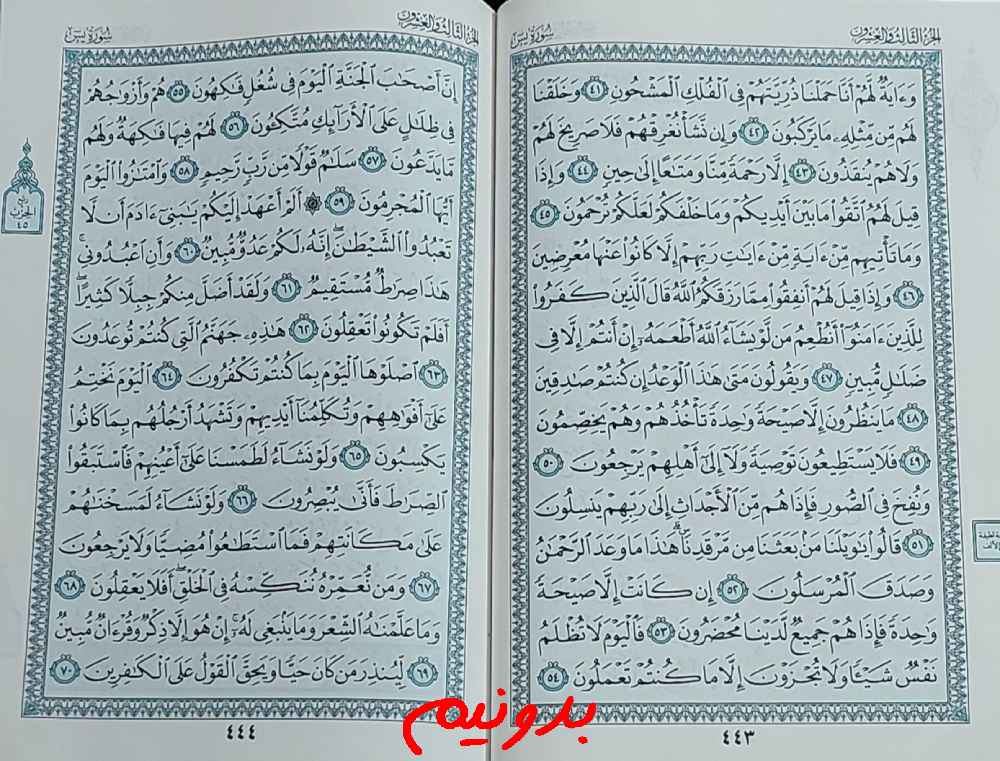 الجزء الثالث والعشرون
سورة يس
وَءَايَةٌ لَّهُمْ أَنَّا حَمَلْنَا ذُرِّيَّتَهُمْ فِي الْفُلْكِ الْمَشْحُونِ ٤١ وَخَلَقْنَا
لَهُم مِّن مِّثْلِهِ مَا يَرْكَبُونَ ٤٢ وَإِن نَّشَأْ نُغْرِقْهُمْ فَلَا صَرِيخَ لَهُمْ
وَلَا هُمْ يُنقَذُونَ ٤٣ إِلَّا رَحْمَةً مِّنَّا وَمَتَاعًا إِلَىٰ حِينٍ ٤٤ وَإِذَا
قِيلَ لَهُمُ اتَّقُوا مَا بَيْنَ أَيْدِيكُمْ وَمَا خَلْفَكُمْ لَعَلَّكُمْ تُرْحَمُونَ ٤٥
وَمَا تَأْتِيهِم مِّنْ ءَايَةٍ مِّنْ ءَايَٰتِ رَبِّهِمْ إِلَّا كَانُوا عَنْهَا مُعْرِضِينَ
٤٦ وَإِذَا قِيلَ لَهُمْ أَنفِقُوا مِمَّا رَزَقَكُمُ اللَّهُ قَالَ الَّذِينَ كَفَرُوا
لِلَّذِينَ ءَامَنُوا أَنُطْعِمُ مَن لَّوْ يَشَاءُ اللَّهُ أَطْعَمَهُ إِنْ أَنتُمْ إِلَّا فِي
ضَلَٰلٍ مُّبِينٍ ٤٧ وَيَقُولُونَ مَتَىٰ هَٰذَا الْوَعْدُ إِن كُنتُمْ صَٰدِقِينَ
٤٨ مَا يَنظُرُونَ إِلَّا صَيْحَةً وَٰحِدَةً تَأْخُذُهُمْ وَهُمْ يَخِصِّمُونَ
٤٩ فَلَا يَسْتَطِيعُونَ تَوْصِيَةً وَلَا إِلَىٰ أَهْلِهِمْ يَرْجِعُونَ ٥٠
وَنُفِخَ فِي الصُّورِ فَإِذَا هُم مِّنَ الْأَجْدَاثِ إِلَىٰ رَبِّهِمْ يَنسِلُونَ
٥١ قَالُوا يَٰوَيْلَنَا مَن بَعَثَنَا مِن مَّرْقَدِنَا هَٰذَا مَا وَعَدَ الرَّحْمَٰنُ
وَصَدَقَ الْمُرْسَلُونَ ٥٢ إِن كَانَتْ إِلَّا صَيْحَةً
وَٰحِدَةً فَإِذَا هُمْ جَمِيعٌ لَّدَيْنَا مُحْضَرُونَ ٥٣ فَالْيَوْمَ لَا تُظْلَمُ
نَفْسٌ شَيْـًٔا وَلَا تُجْزَوْنَ إِلَّا مَا كُنتُمْ تَعْمَلُونَ ٥٤
٤٤٣
الجزء الثالث والعشرون
سورة يس
إِنَّ أَصْحَٰبَ الْجَنَّةِ الْيَوْمَ فِي شُغُلٍ فَٰكِهُونَ ٥٥ هُمْ وَأَزْوَٰجُهُمْ
فِي ظِلَٰلٍ عَلَى الْأَرَائِكِ مُتَّكِـُٔونَ ٥٦ لَهُمْ فِيهَا فَٰكِهَةٌ وَلَهُم
مَّا يَدَّعُونَ ٥٧ سَلَٰمٌ قَوْلًا مِّن رَّبٍّ رَّحِيمٍ ٥٨ وَامْتَٰزُوا الْيَوْمَ
أَيُّهَا الْمُجْرِمُونَ ٥٩ ۞ أَلَمْ أَعْهَدْ إِلَيْكُمْ يَٰبَنِي ءَادَمَ أَن لَّا
تَعْبُدُوا الشَّيْطَٰنَ إِنَّهُ لَكُمْ عَدُوٌّ مُّبِينٌ ٦٠ وَأَنِ اعْبُدُونِي
هَٰذَا صِرَٰطٌ مُّسْتَقِيمٌ ٦١ وَلَقَدْ أَضَلَّ مِنكُمْ جِبِلًّا كَثِيرًا
أَفَلَمْ تَكُونُوا تَعْقِلُونَ ٦٢ هَٰذِهِ جَهَنَّمُ الَّتِي كُنتُمْ تُوعَدُونَ
٦٣ اصْلَوْهَا الْيَوْمَ بِمَا كُنتُمْ تَكْفُرُونَ ٦٤ الْيَوْمَ نَخْتِمُ
عَلَىٰ أَفْوَٰهِهِمْ وَتُكَلِّمُنَا أَيْدِيهِمْ وَتَشْهَدُ أَرْجُلُهُم بِمَا كَانُوا
يَكْسِبُونَ ٦٥ وَلَوْ نَشَاءُ لَطَمَسْنَا عَلَىٰ أَعْيُنِهِمْ فَاسْتَبَقُوا
الصِّرَٰطَ فَأَنَّىٰ يُبْصِرُونَ ٦٦ وَلَوْ نَشَاءُ لَمَسَخْنَٰهُمْ
عَلَىٰ مَكَانَتِهِمْ فَمَا اسْتَطَٰعُوا مُضِيًّا وَلَا يَرْجِعُونَ
٦٧ وَمَن نُّعَمِّرْهُ نُنَكِّسْهُ فِي الْخَلْقِ أَفَلَا يَعْقِلُونَ ٦٨
وَمَا عَلَّمْنَٰهُ الشِّعْرَ وَمَا يَنبَغِي لَهُ إِنْ هُوَ إِلَّا ذِكْرٌ وَقُرْءَانٌ مُّبِينٌ
٦٩ لِّيُنذِرَ مَن كَانَ حَيًّا وَيَحِقَّ الْقَوْلُ عَلَى الْكَٰفِرِينَ ٧٠
ربع
الحزب
٤٥
٤٤٤
بدونیم